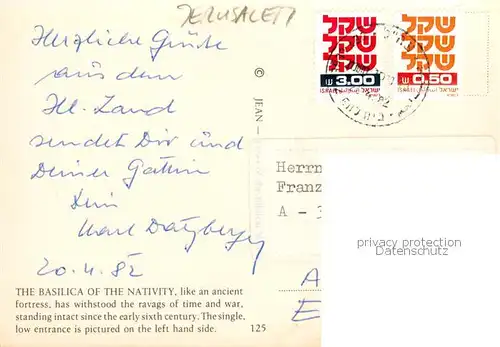 JERUSALEM
Herzliche Grüße
aus dem
Hl. Land
sendet Dir und
Deiner Gattin
Dein
Karl
20.4.82
THE BASILICA OF THE NATIVITY, like an ancient
fortress, has withstood the ravages of time and war,
standing intact since the early sixth century. The single,
low entrance is pictured on the left hand side. 125
© JEAN –
שקל שקל
שקל שקל
שקל שקל
3.00 0.50
ISRAEL ישראל ISRAEL ישראל
Herrn
Franz
A - 3
privacy protection
Datenschutz
A
E